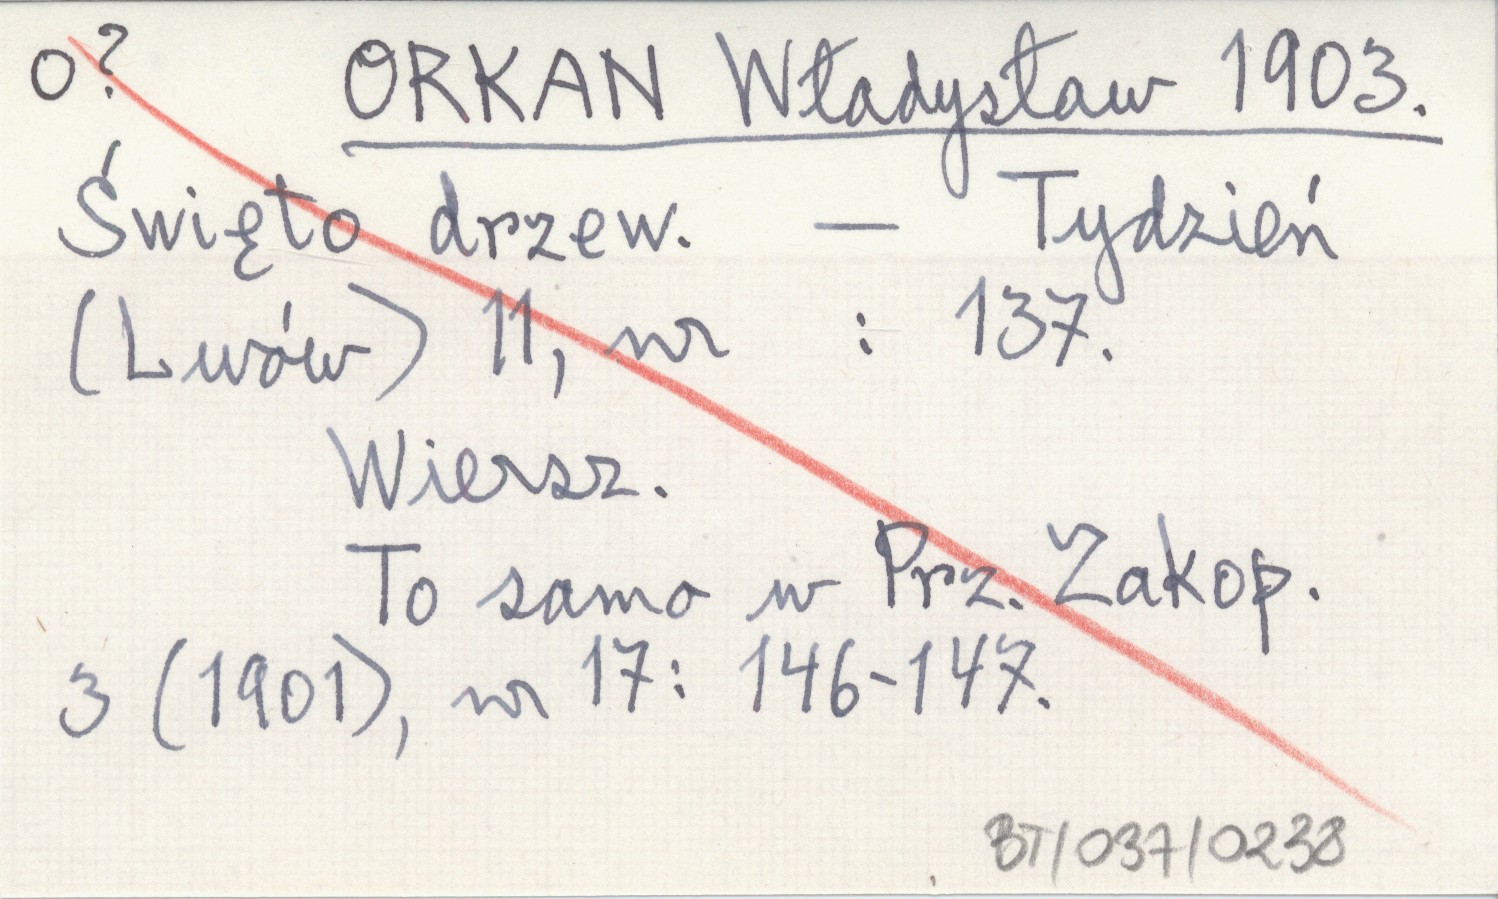 O? ORKAN Władysław 1903.
Święto drzew. — Tydzień
(Lwów) 11, nr : 137.
Wiersz.
To samo w Prz. Zakop.
3 (1901), nr 17: 146-147.
BT/037/0238